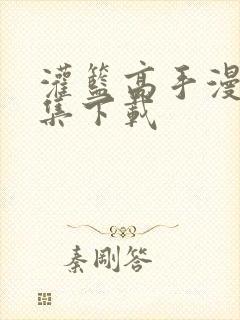 灌籃高手漫
集下載
秦剛答